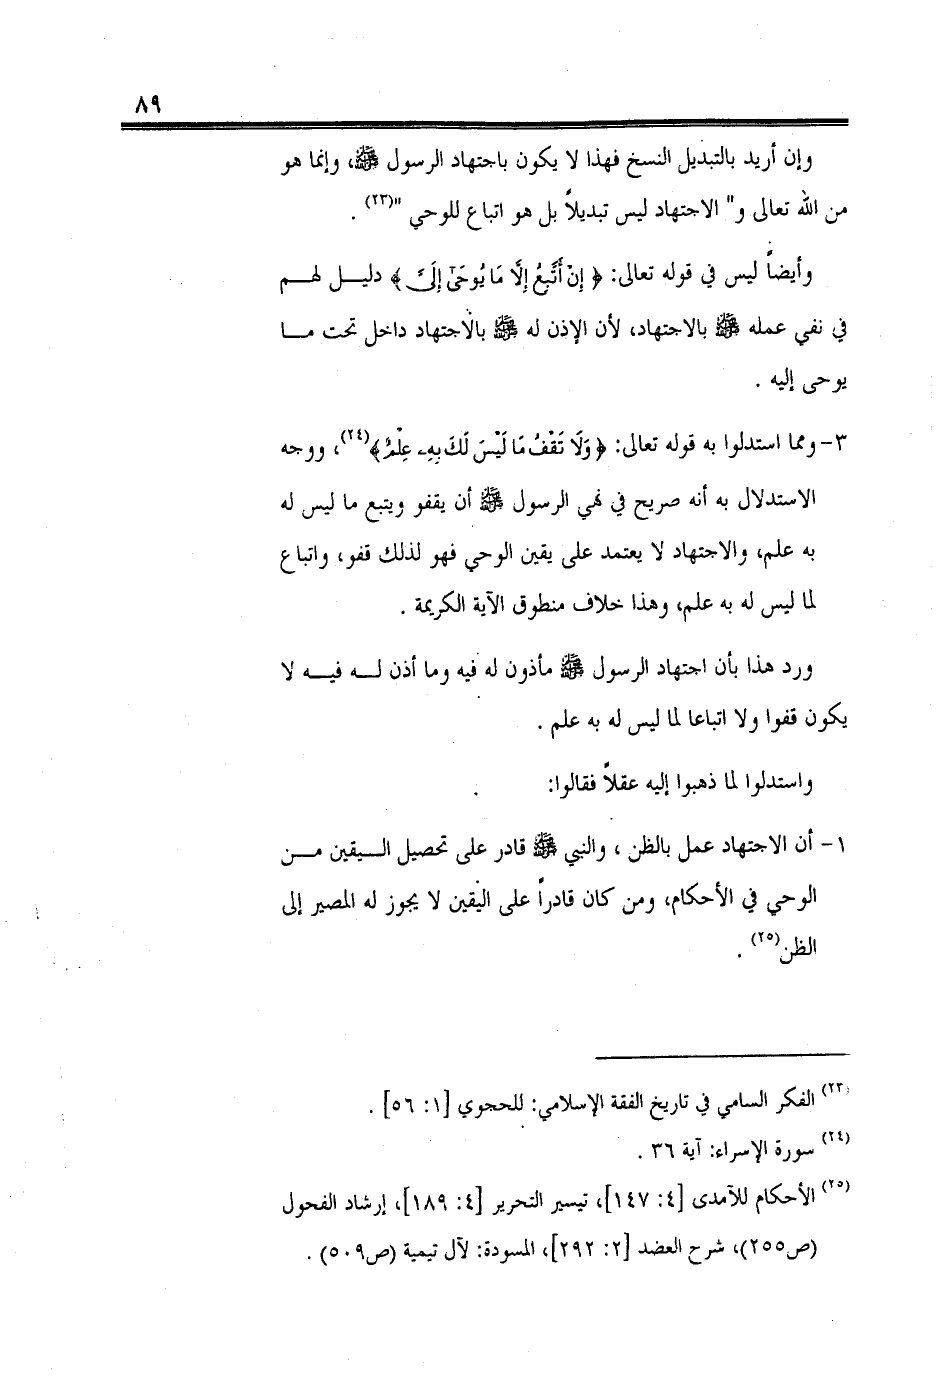 ٨٩
وإن أريد بالتبديل النسخ فهذا لا يكون باجتهاد الرسول ﷺ، وإنما هو
من الله تعالى و" الاجتهاد ليس تبديلاً بل هو اتباع للوحي "(٢٣) .
وأيضاً ليس في قوله تعالى: ﴿ إِنْ أَتَّبِعُ إِلَّا مَا يُوحَىٰٓ إِلَىَّ ﴾ دليل لهم
في نفي عمله ﷺ بالاجتهاد، لأن الإذن له ﷺ بالاجتهاد داخل تحت ما
يوحى إليه .
٣- ومما استدلوا به قوله تعالى: ﴿ وَلَا تَقْفُ مَا لَيْسَ لَكَ بِهِۦ عِلْمٌ﴾(٢٤)، ووجه
الاستدلال به أنه صريح في نهي الرسول ﷺ أن يقفو ويتبع ما ليس له
به علم، والاجتهاد لا يعتمد على يقين الوحي فهو لذلك قفو، واتباع
لما ليس له به علم، وهذا خلاف منطوق الآية الكريمة .
ورد هذا بأن اجتهاد الرسول ﷺ مأذون له فيه وما أذن له فيه لا
يكون قفوا ولا اتباعا لما ليس له به علم .
واستدلوا لما ذهبوا إليه عقلاً فقالوا:
١- أن الاجتهاد عمل بالظن ، والنبي ﷺ قادر على تحصيل اليقين من
الوحي في الأحكام، ومن كان قادراً على اليقين لا يجوز له المصير إلى
الظن(٢٥) .
(٢٣) الفكر السامي في تاريخ الفقة الإسلامي: للحجوي [١: ٥٦] .
(٢٤) سورة الإسراء: آية ٣٦ .
(٢٥) الأحكام للآمدى [٤: ١٤٧]، تيسير التحرير [٤: ١٨٩]، إرشاد الفحول
(ص٢٥٥)، شرح العضد [٢: ٢٩٢]، المسودة: لآل تيمية (ص٥٠٩) .